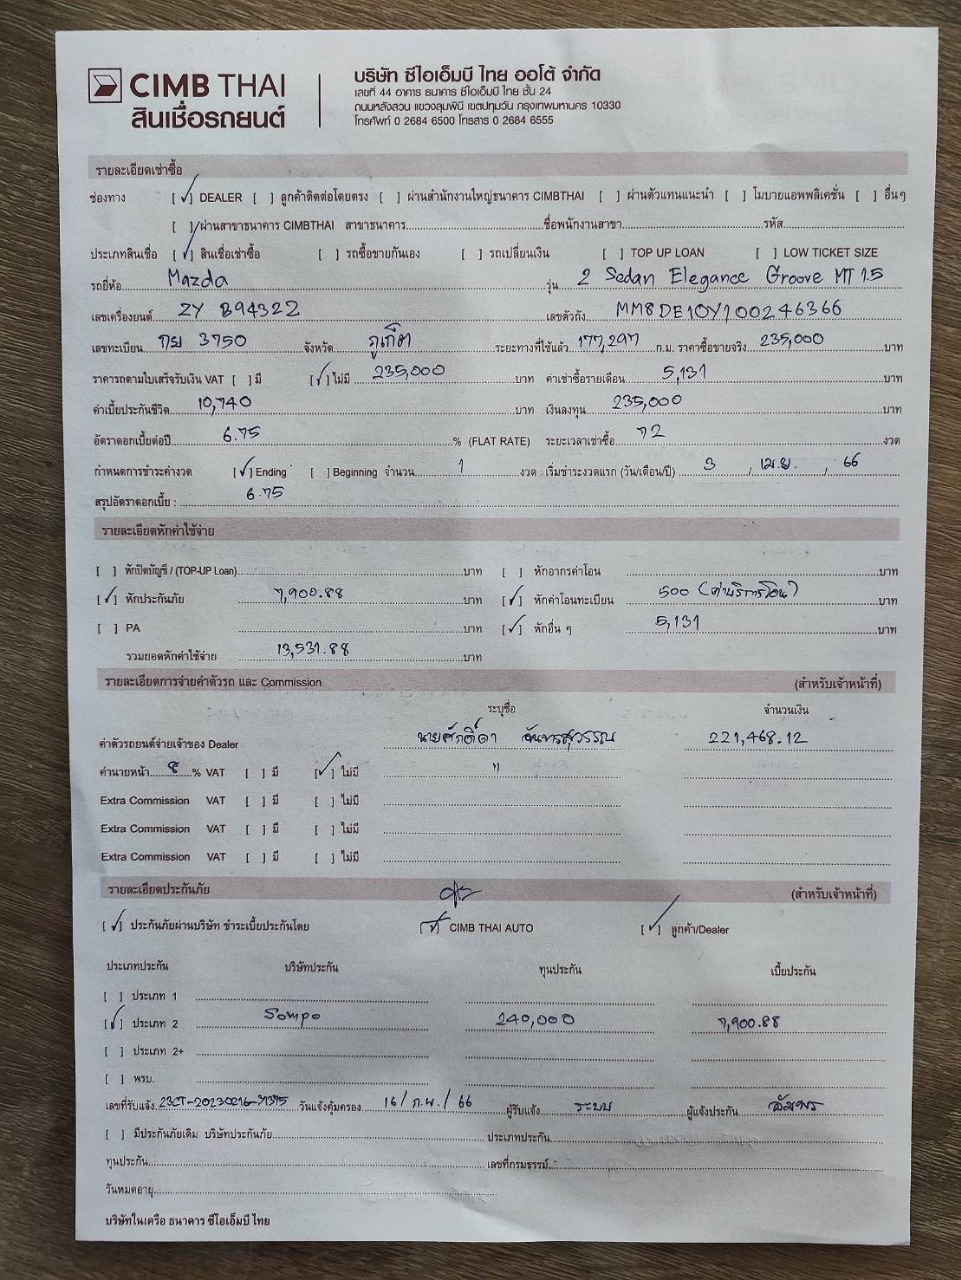 CIMB THAI
สินเชื่อรถยนต์
บริษัท ซีไอเอ็มบี ไทย ออโต้ จำกัด
เลขที่ 44 อาคาร ธนาคาร ซีไอเอ็มบี ไทย ชั้น 24
ถนนหลังสวน แขวงลุมพินี เขตปทุมวัน กรุงเทพมหานคร 10330
โทรศัพท์ 0 2684 6500 โทรสาร 0 2684 6555
รายละเอียดเช่าซื้อ
ช่องทาง [✓] DEALER [ ] ลูกค้าติดต่อโดยตรง [ ] ผ่านสำนักงานใหญ่ธนาคาร CIMBTHAI [ ] ผ่านตัวแทนแนะนำ [ ] โมบายแอพพลิเคชั่น [ ] อื่นๆ
[ ] ผ่านสาขาธนาคาร CIMBTHAI สาขาธนาคาร ชื่อพนักงานสาขา รหัส
ประเภทสินเชื่อ [✓] สินเชื่อเช่าซื้อ [ ] รถซื้อขายกันเอง [ ] รถเปลี่ยนเงิน [ ] TOP UP LOAN [ ] LOW TICKET SIZE
รถยี่ห้อ Mazda รุ่น 2 Sedan Elegance Groove MT 1.5
เลขเครื่องยนต์ ZY B94322 เลขตัวถัง MM8DE10Y100246366
เลขทะเบียน กย 3750 จังหวัด ภูเก็ต ระยะทางที่ใช้แล้ว 177,297 ก.ม. ราคาซื้อขายจริง 235,000 บาท
ราคารถตามใบเสร็จรับเงิน VAT [ ] มี [✓] ไม่มี 235,000 บาท ค่าเช่าซื้อรายเดือน 5,131 บาท
ค่าเบี้ยประกันชีวิต 10,740 บาท เงินลงทุน 235,000 บาท
อัตราดอกเบี้ยต่อปี 6.75 % (FLAT RATE) ระยะเวลาเช่าซื้อ 72 งวด
กำหนดการชำระค่างวด [✓] Ending [ ] Beginning จำนวน 1 งวด เริ่มชำระงวดแรก (วัน/เดือน/ปี) 3 / เม.ย. / 66
สรุปอัตราดอกเบี้ย : 6.75
รายละเอียดหักค่าใช้จ่าย
[ ] หักปิดบัญชี / (TOP-UP Loan) บาท [ ] หักอากรค่าโอน บาท
[✓] หักประกันภัย 7,900.88 บาท [✓] หักค่าโอนทะเบียน 500 (ค่าบริการโอน) บาท
[ ] PA บาท [✓] หักอื่น ๆ 5,131 บาท
รวมยอดหักค่าใช้จ่าย 13,531.88 บาท
รายละเอียดการจ่ายค่าตัวรถ และ Commission (สำหรับเจ้าหน้าที่)
ระบุชื่อ จำนวนเงิน
ค่าตัวรถยนต์จ่ายเจ้าของ Dealer นายศักดิ์ดา จันทรสุวรรณ 221,468.12
ค่านายหน้า 8 % VAT [ ] มี [✓] ไม่มี "
Extra Commission VAT [ ] มี [ ] ไม่มี
Extra Commission VAT [ ] มี [ ] ไม่มี
Extra Commission VAT [ ] มี [ ] ไม่มี
รายละเอียดประกันภัย (สำหรับเจ้าหน้าที่)
[✓] ประกันภัยผ่านบริษัท ชำระเบี้ยประกันโดย CIMB THAI AUTO [✓] ลูกค้า/Dealer
ประเภทประกัน บริษัทประกัน ทุนประกัน เบี้ยประกัน
[ ] ประเภท 1
[✓] ประเภท 2 Sompo 240,000 7,900.88
[ ] ประเภท 2+
[ ] พรบ.
เลขที่รับแจ้ง 23CT-20230216-31375 วันแจ้งคุ้มครอง 16 / ก.พ. / 66 ผู้รับแจ้ง ระบบ ผู้แจ้งประกัน อัมพร
[ ] มีประกันภัยเดิม บริษัทประกันภัย ประเภทประกัน
ทุนประกัน เลขที่กรมธรรม์
วันหมดอายุ
บริษัทในเครือ ธนาคาร ซีไอเอ็มบี ไทย